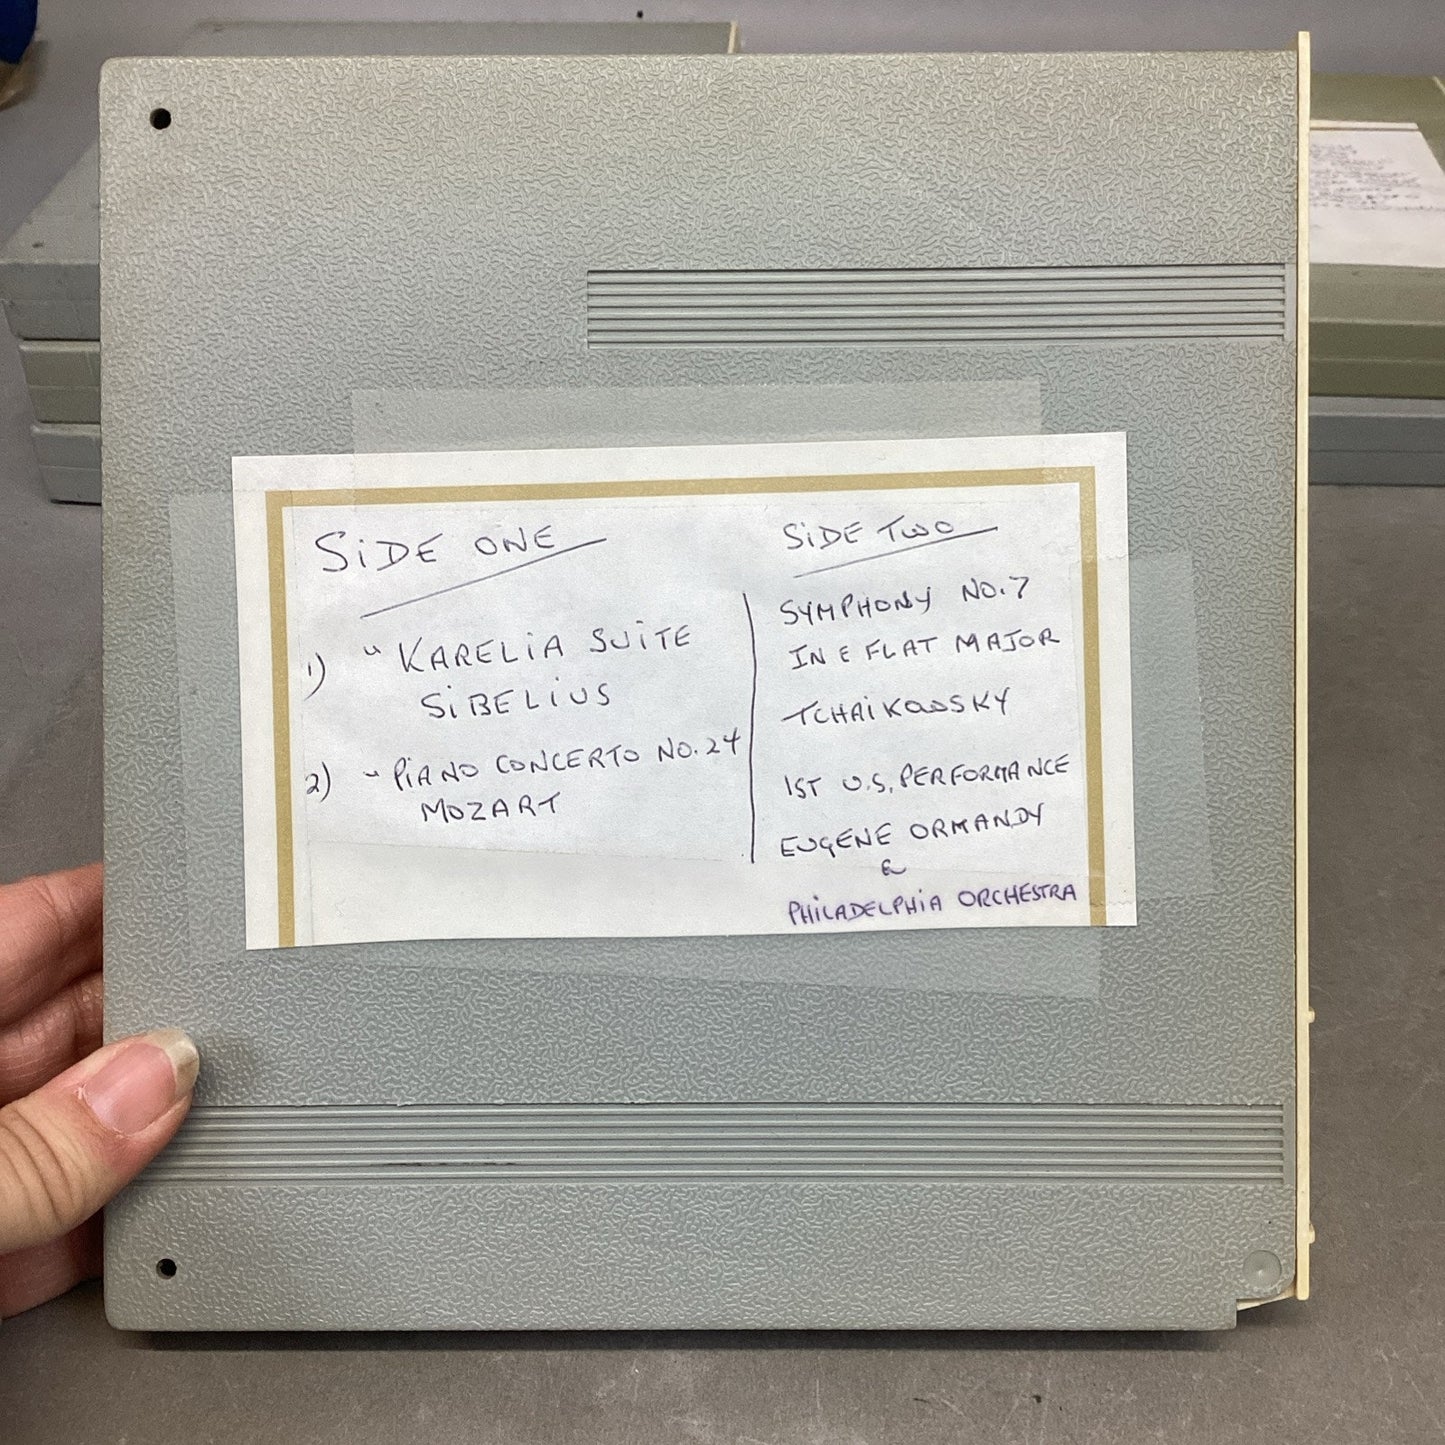 SIDE ONE
1) " KARELIA SUITE
SIBELIUS
2) " PIANO CONCERTO NO. 24
MOZART
SIDE TWO
SYMPHONY NO. 7
IN E FLAT MAJOR
TCHAIKOWSKY
1ST U.S. PERFORMANCE
EUGENE ORMANDY
&
PHILADELPHIA ORCHESTRA